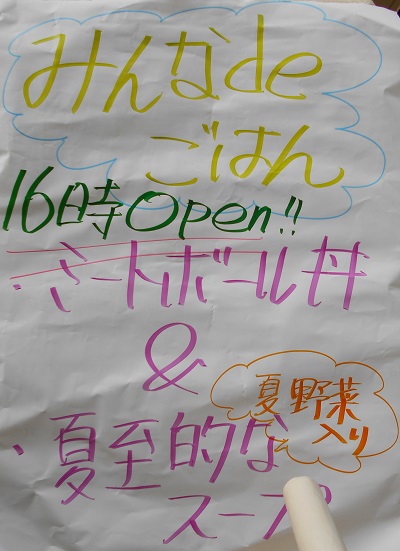 みんなde
ごはん
16時Open!!
・ミートボール丼
&
・夏至的な
スープ
夏野菜
入り